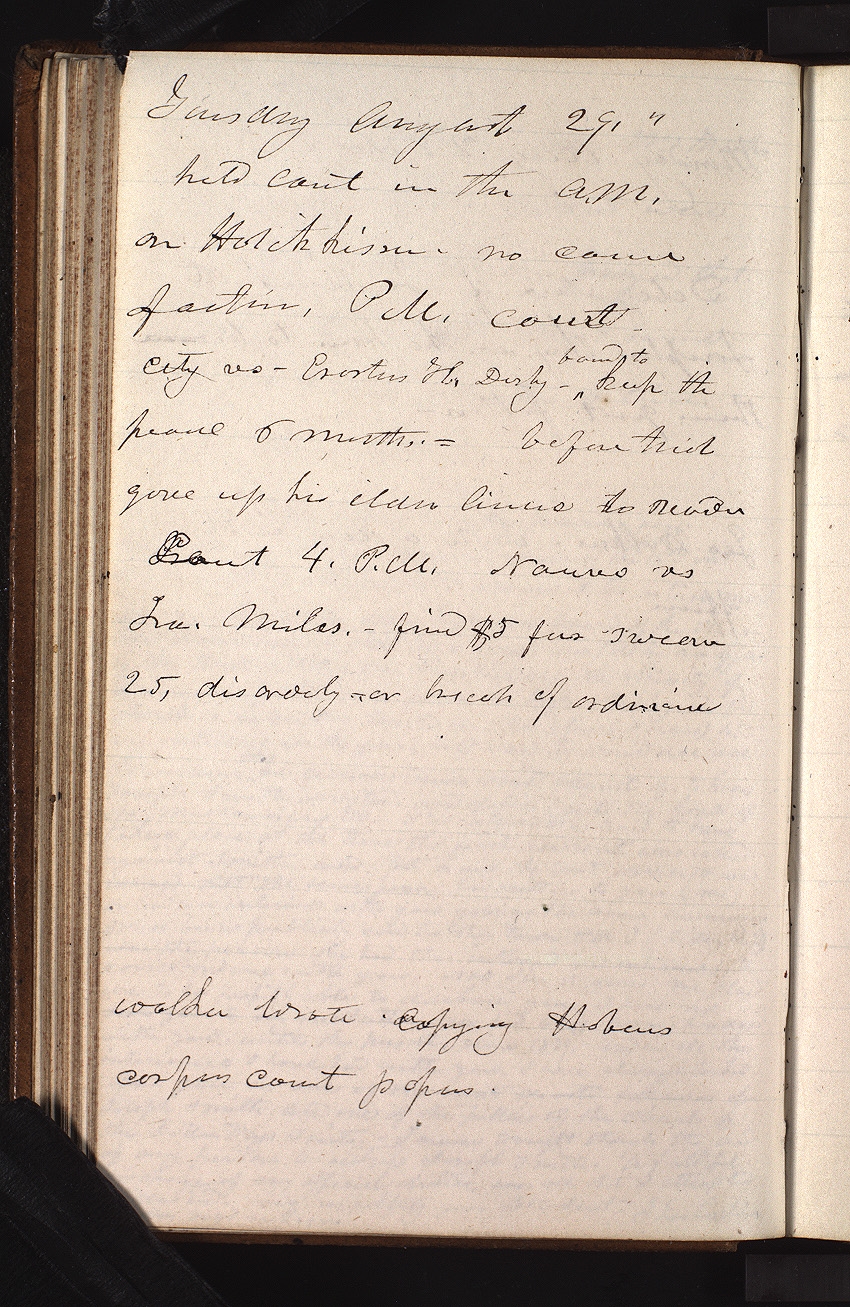 Tuesday August 29. "
held court in the A.M.
on Hotchkiss no cause
of action, P.M. court
city vs - Erastus H. Derby - bound to keep the
peace 6 months. = before trial
gave up his elders licence to
Court 4. P.M. Nauvoo vs
Ira. Miles. - fined $5 for swearing
25, disorderly = or breach of ordinance
walker wrote copying Habeus
corpus court papers.